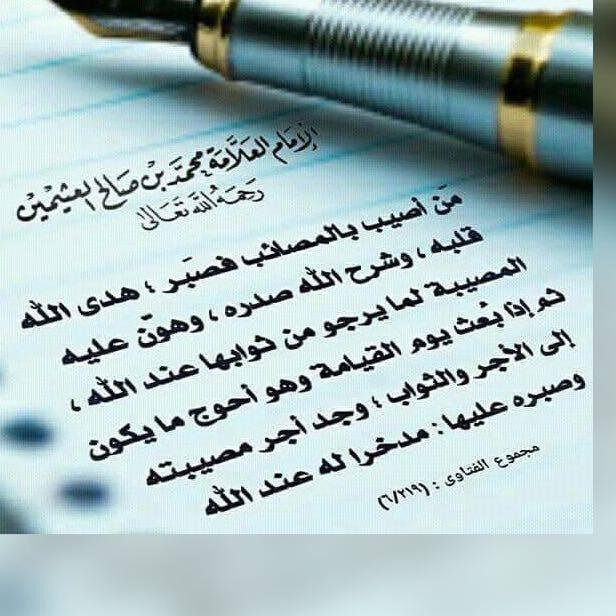 الإمام العلامة محمد بن صالح العثيمين
رحمه الله تعالى
من أصيب بالمصائب فصبر ؛ هدى الله
قلبه ، وشرح الله صدره ، وهون عليه
المصيبة لما يرجو من ثوابها عند الله ،
ثم إذا بُعث يوم القيامة وهو أحوج ما يكون
إلى الأجر والثواب ؛ وجد أجر مصيبته
وصبره عليها : مدخرا له عند الله
مجموع الفتاوى : (٦/٢١٩)